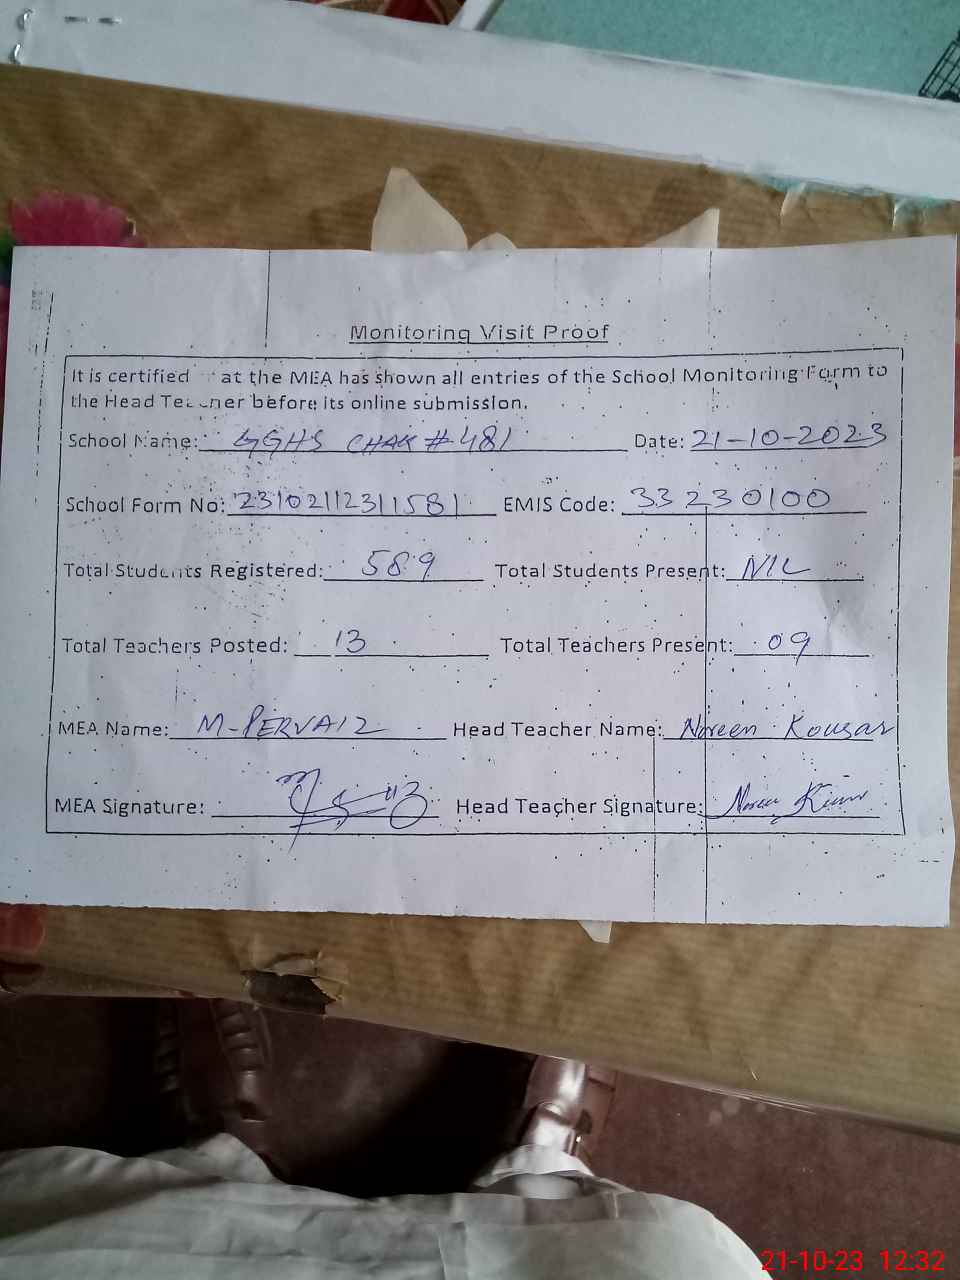 Monitoring Visit Proof
It is certified at the MEA has shown all entries of the School Monitoring Form to
the Head Teacher before its online submission.
School Name: GGHS CHAK # 481 Date: 21-10-2023
School Form No: 23102112311581 EMIS Code: 33230100
Total Students Registered: 589 Total Students Present: NIL
Total Teachers Posted: 13 Total Teachers Present: 09
MEA Name: M-PERVAIZ Head Teacher Name: Noreen Kousar
MEA Signature: Head Teacher Signature:
21-10-23 12:32